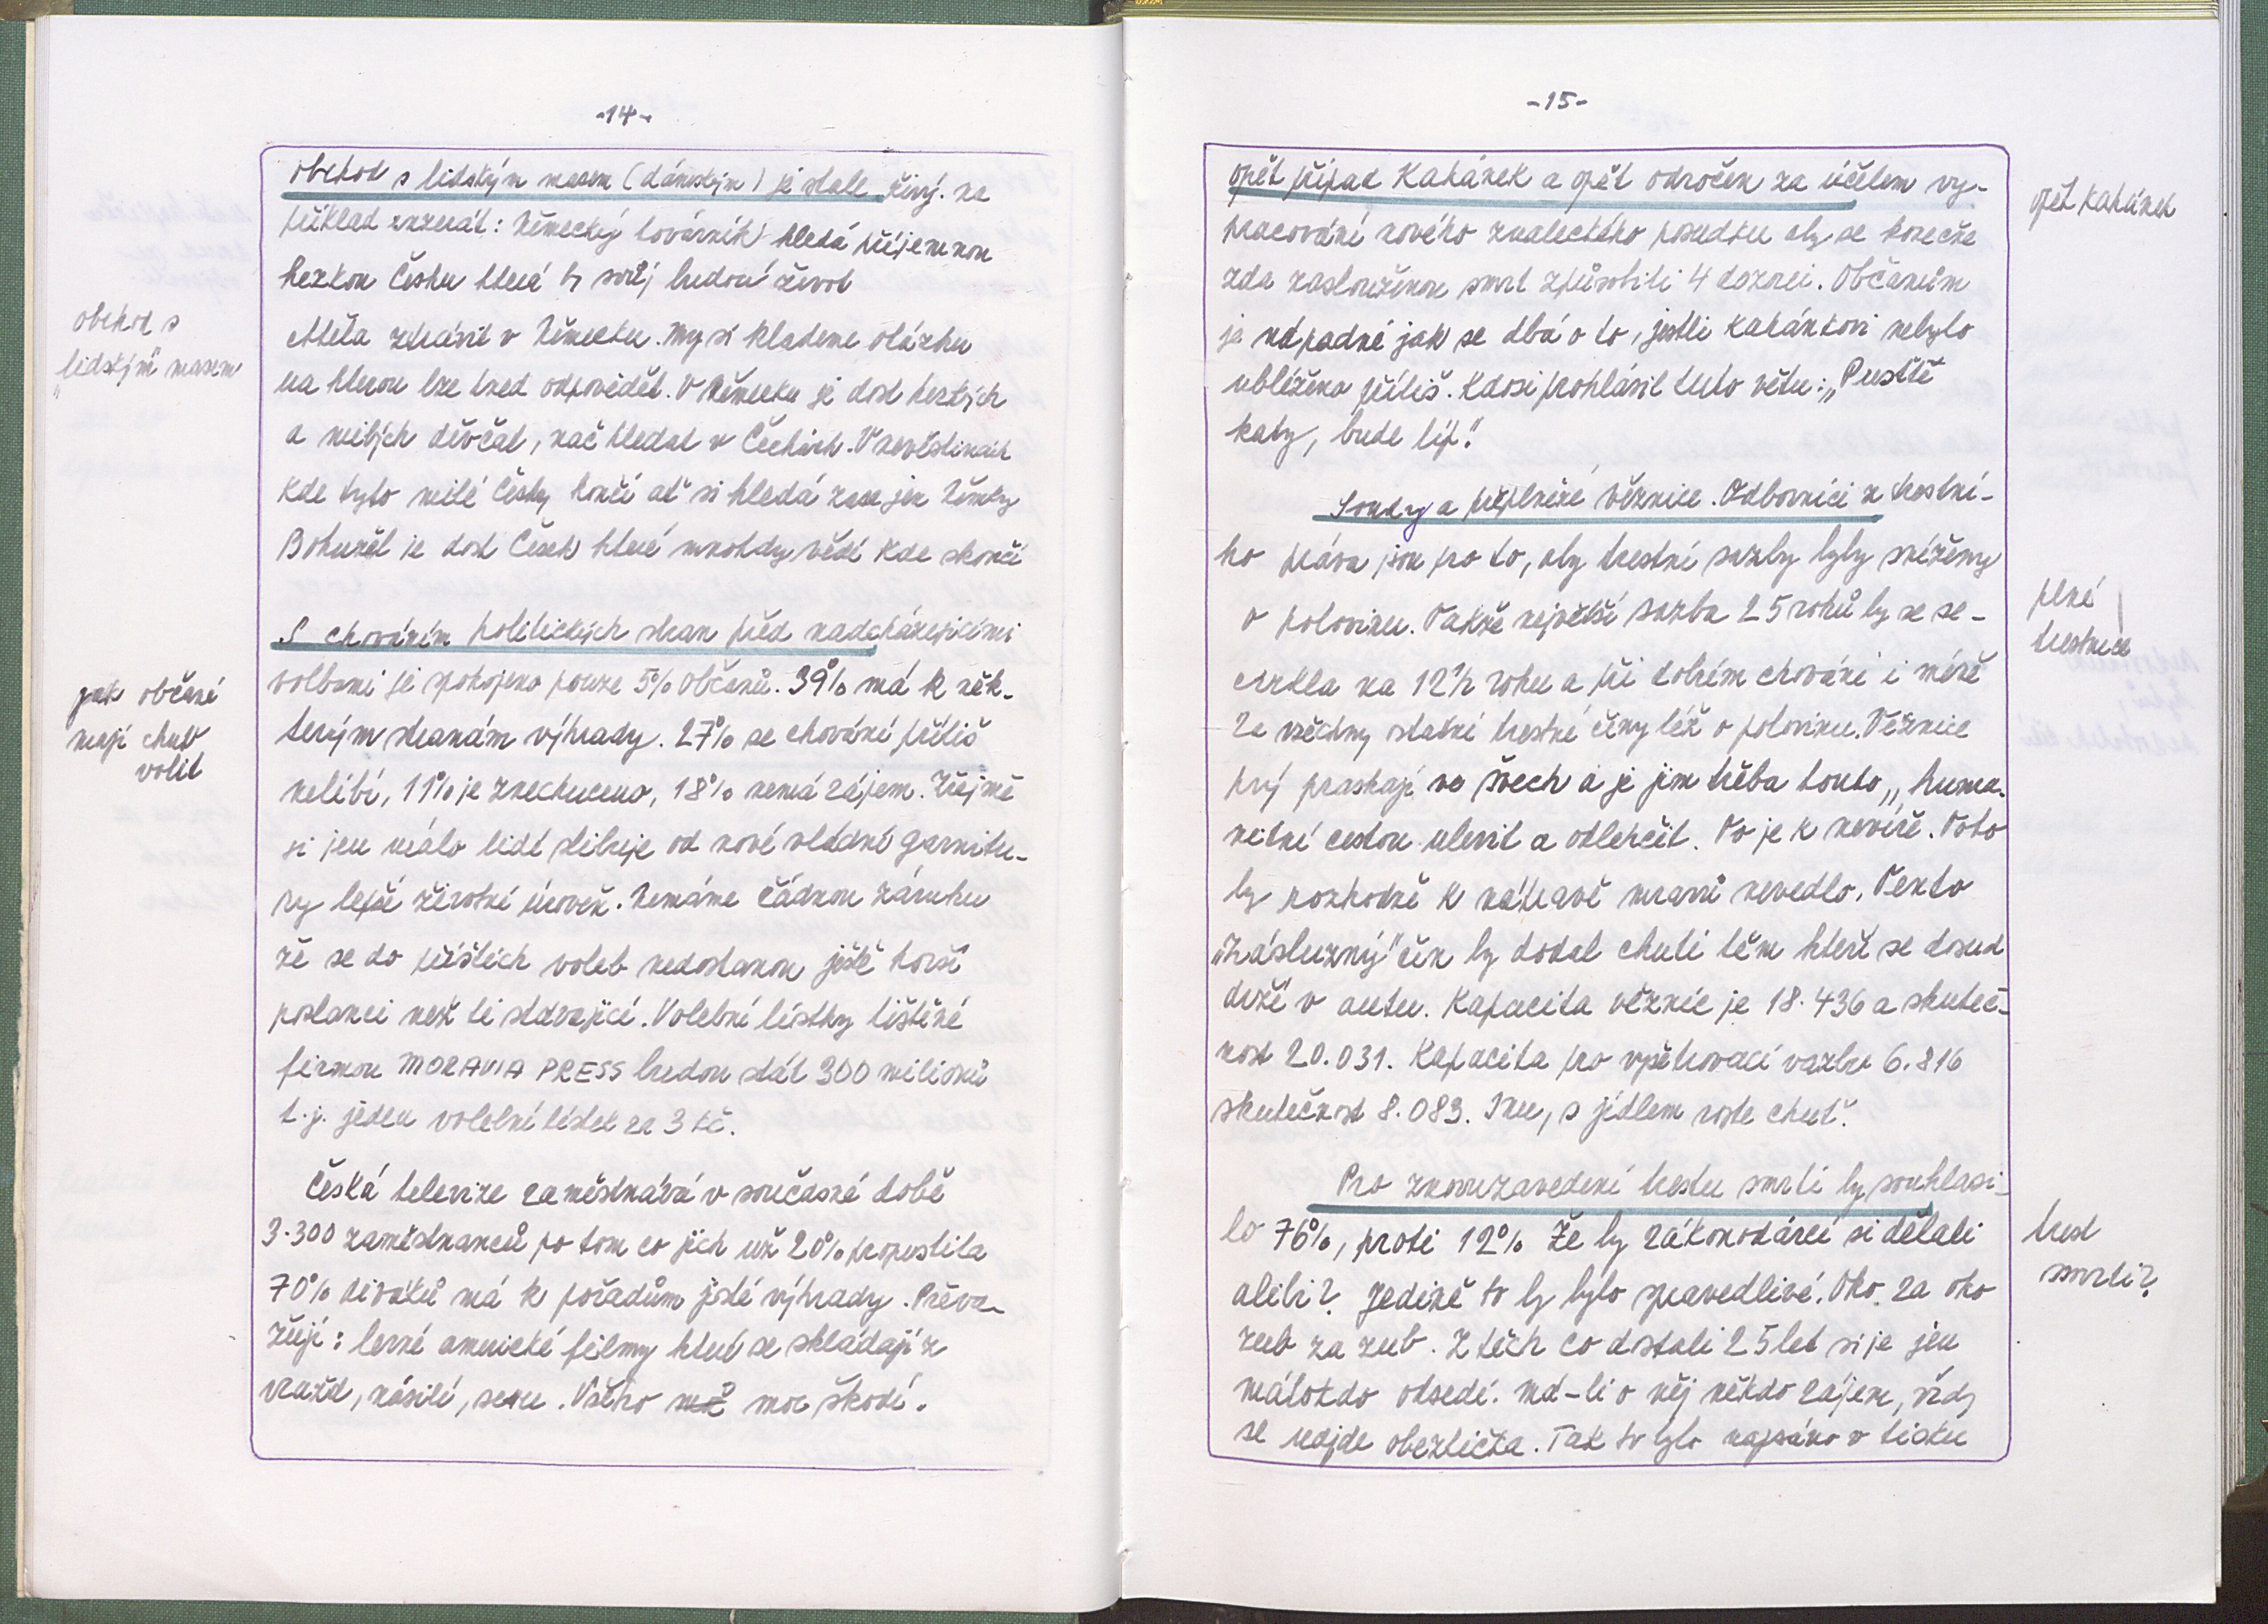 -14-
obchod s lidským masem (dámským) je stále živý. na
příklad inzerát: Německý továrník hledá příjemnou
hezkou Češku která by svůj budoucí život
chtěla strávit v Německu. My si klademe otázku
na kterou lze hned odpovědět. V Německu je dost hezkých
a milých děvčat, nač hledat v Čechách. V nevěstincích
kde tyto milé Češky končí ať si hledá zase jen Němky
Bohužel je dost Češek které mnohdy vědí kde skončí
obchod s
"lidským" masem
S chováním politických stran před nadcházejícími
volbami je spokojeno pouze 5% občanů. 39% má k něk-
terým stranám výhrady. 27% se chování příliš
nelíbí, 11% je znechuceno, 18% nemá zájem. Zřejmě
si jen málo lidí slibuje od nové vládní garnitu-
ry lepší životní úroveň. Nemáme žádnou záruku
že se do příštích voleb nedostanou ještě horší
poslanci než ti stávající. Volební lístky tištěné
firmou MORAVIA PRESS budou stát 300 milionů
t.j. jeden volební lístek za 3 kč.
jak občané
mají chuť
volit
Česká televize zaměstnává v současné době
3.300 zaměstnanců po tom co jich už 20% propustila
70% diváků má k pořadům jisté výhrady. Převa-
žují: levné americké filmy které se skládají z
vražd, násilí, sexu. Všeho moc škodí.
-15-
opět případ Kahánek a opět odročen za účelem vy-
pracování nového znaleckého posudku aby se konečně
zda zaslouženou smrt způsobili 4 dozorci. Občanům
je nápadné jak se dbá o to, jestli Kahánkovi nebylo
ublíženo příliš. Kdosi prohlásil tuto větu: „Pusťtě
katy, bude líp."
opět Kahánek
Soudy a přeplněné věznice. Odborníci z trestní-
ho práva jsou pro to, aby trestní sazby byly sníženy
o polovinu. Takže největší sazba 25 roků by se se-
smrskla na 12½ roku a při dobrém chování i méně
Za všechny ostatní trestné činy též o polovinu. Věznice
prý praskají ve švech a je jim třeba touto „huma-
nitní cestou ulevit a odlehčit. To je k nevíře. Toto
by rozhodně k nápravě mravů nevedlo. Tento
„záslužný" čin by dodal chuti těm kteří se dosud
drží v autu. Kapacita věznic je 18.436 a skuteč-
nost 20.031. Kapacita pro vyšetrovací vazbu 6.816
skutečnost 8.083. Inu, s jídlem roste chuť.
plné
trestnice
Pro znovuzavedení trestu smrti by souhlasi-
lo 76%, proti 12% Že by zákonodárci si dělali
alibi? Jedině to by bylo spravedlivé. Oko za oko
zub za zub. Z těch co dostali 25 let si je jen
málokdo odsedí. Má-li o něj někdo zájem, vždy
se najde obezlička. Tak to bylo napsáno v tisku
trest
smrti?